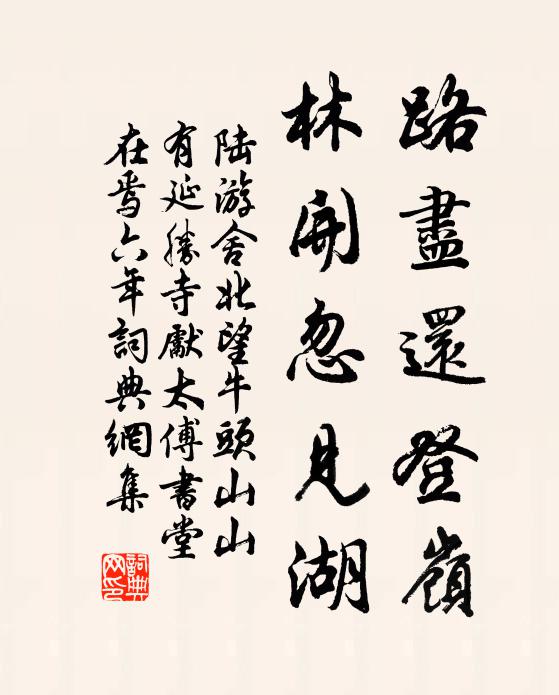 路盡還登嶺
林開忽見湖
陆游舍北望牛頭山山
有延勝寺獻太傅書堂
在焉六年詞典網集
詞典
网印